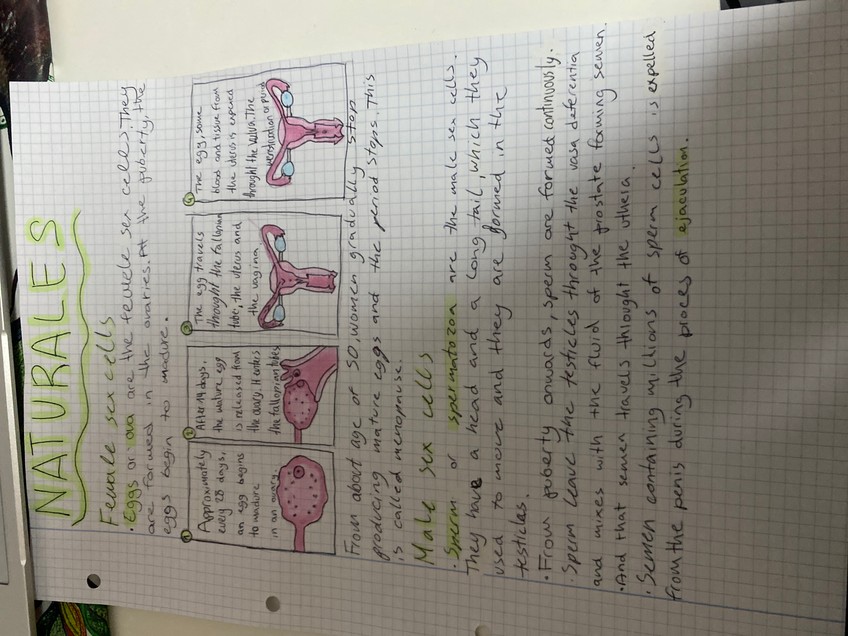 NATURALES
Female sex cells
· Eggs or ova are the female sex cells. They
are formed in the ovaries. At the puberty, the
eggs begin to madure.
1
Approximately
every 28 days,
an egg begins
to madure
in an ovary.
2
After 14 days,
the mature egg
is released from
the ovary. It enters
the fallopian tubes
3
The egg travels
throught the fallopian
tube, the uterus and
the vagina
4
The egg, some
blood and tissue from
the uterus is expened
throught the vulva. The
menstruation or period
From about age of 50, women gradually stop
producing mature eggs and the period stops. This
is called menopause.
Male sex cells
· Sperm or spermatozoa are the male sex cells.
They have a head and a long tail, which they
used to move and they are formed in the
testicles.
· From puberty onwards, sperm are formed continuously.
· Sperm leave the testicles throught the vasa deferentia
and mixes with the fluid of the prostate forming semen.
· And that semen travels throught the utheia.
· Semen containing millions of sperm cells is expelled
from the penis during the proces of ejaculation.